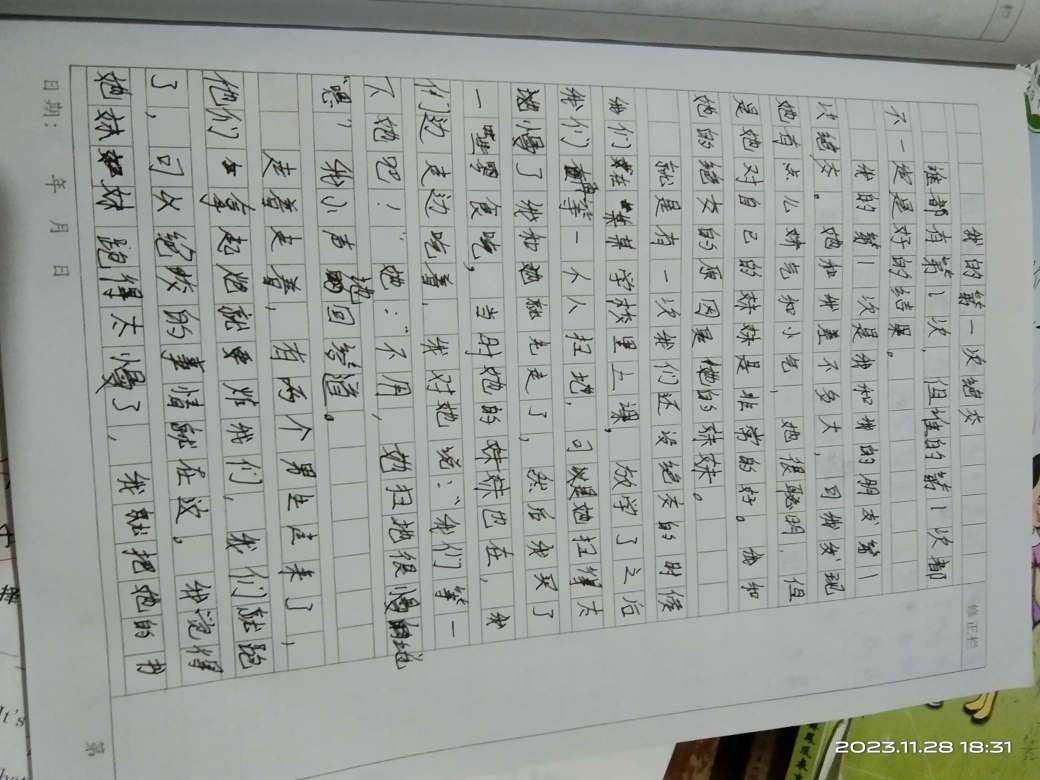 我的第一次绝交
谁都有第1次，但谁的第1次都
不一定是好的结果。
我的第1次是我和我的朋友第1
次绝交。她和我差不多大，可我发现
她有点儿娇气和小气，她很聪明，但
是她对自己的妹妹是非常的好。我和
她的绝交的原因是她的妹妹。
就是有一次我们还没绝交的时候
我们在某某学校里上课，放学了之后
我们等一个人扫地，可是她扫得太
慢了我和她就先走了，然后我买了
一些零食吃，当时她的妹妹也在，我
们边走边吃着，我对她说：“我们等一
下她吧！”她：“不用，她扫地很慢地
“嗯”我小声地回答道。
走着走着，有两个男生追来了，
他们拿起炮就要炸我们，我们就跑
了，可以绝交的事情就在这。我觉得
她妹妹跑得太慢了，我就把她的书
日期： 年 月 日
第
修正栏
It's
2023.11.28 18:31